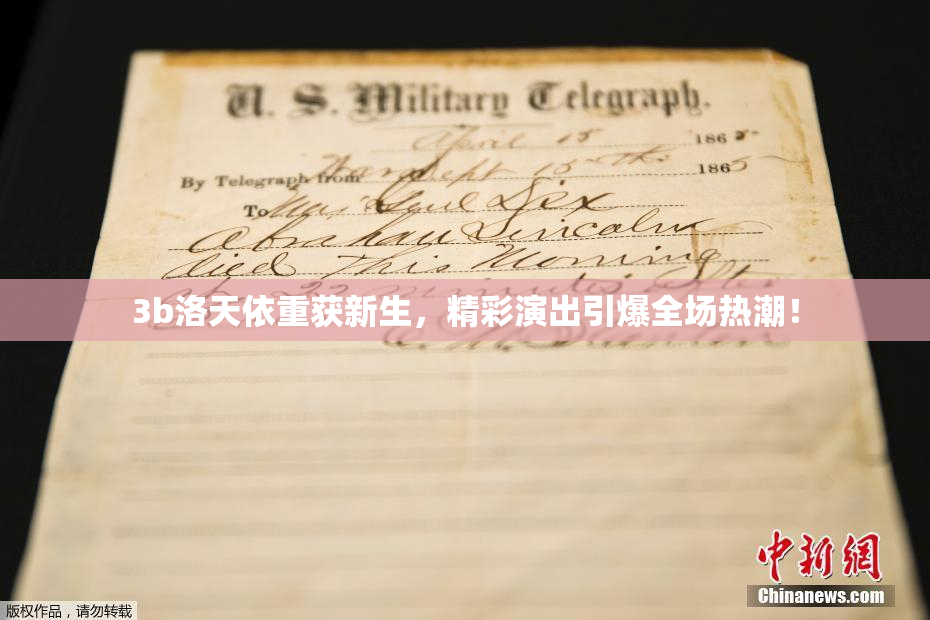 U. S. Military Telegraph.
April 15 1865
By Telegraph from War Dept 15th 1865
To Maj Genl Dix
Abraham Lincoln
died This Morning
at 22 minutes after
3b洛天依重获新生，精彩演出引爆全场热潮！
E. M. Stanton
中新网
Chinanews.com
版权作品，请勿转载